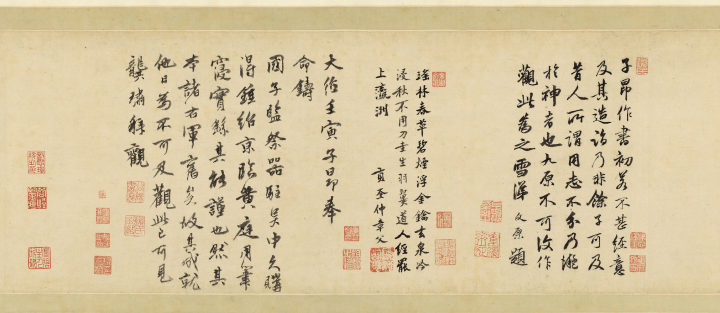 子昂作書初若不甚經意
及其造詣乃非餘子可及
昔人所謂用志不分乃凝
於神者也九原不可復作
觀此為之雪涕 文原題
瑤林春草碧煙浮金鑰玄泉冷
浸秋不用刀圭生羽翼道人經罷
上瀛洲
仲章父
大德壬寅子昂奉
命鑄
國子監祭器駐吳中久購
得鍾紹京臨黃庭用筆
謹也然其
本諸右軍舊矣故其成就
他日為不可及觀此已可見
龔璛拜觀